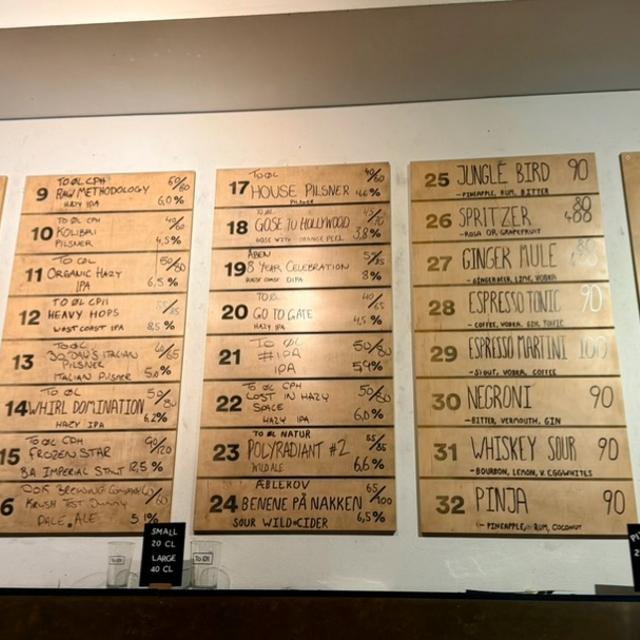 9 TO ØL CPH 50/80
RAW METHODOLOGY
HAZY IPA 6,0%
10 TO ØL CPH 40/60
KOLIBRI
PILSNER 4,5%
11 TO ØL 50/80
ORGANIC HAZY
IPA 6,5%
12 TO ØL CPH
HEAVY HOPS
WEST COAST IPA 8,5%
13 TO ØL
ITALIAN
PILSNER
ITALIAN PILSNER 5,0%
14 TO ØL 50/80
WHIRL DOMINATION
HAZY IPA 6,2%
15 TO ØL CPH 90/120
FROZEN STAR
BA IMPERIAL STOUT 12,5%
6
KRUSH TEST
PALE ALE 5,1%
17 TO ØL 40/60
HOUSE PILSNER 4,6%
PILSNER
18 TO ØL
GOSE TO HOLLYWOOD
GOSE WITH ORANGE PEEL 3,8%
19 ÅBEN
8 YEAR CELEBRATION
WEST COAST DIPA 8%
20 TO ØL
GO TO GATE
HAZY IPA 4,5%
21 TO ØL 50/80
#IPA
IPA 5,4%
22 TO ØL CPH 50/80
LOST IN HAZY
SPACE
HAZY IPA 6,0%
23 TO ØL NATUR 55/85
POLYRADIANT #2
WILD ALE 6,6%
24 ÆBLEKOV 65/100
BENENE PÅ NAKKEN
SOUR WILD CIDER 6,5%
25 JUNGLE BIRD 90
- PINEAPPLE, RUM, BITTER
26 SPRITZER
- ROSA OR GRAPEFRUIT
27 GINGER MULE
- GINGER BEER, LIME, VODKA
28 ESPRESSO TONIC 90
- COFFEE, VODKA, GIN, TONIC
29 ESPRESSO MARTINI 100
- STOUT, VODKA, COFFEE
30 NEGRONI 90
- BITTER, VERMOUTH, GIN
31 WHISKEY SOUR 90
- BOURBON, LEMON, V. EGGWHITES
32 PINJA 90
- PINEAPPLE, RUM, COCONUT
SMALL
20 CL
LARGE
40 CL